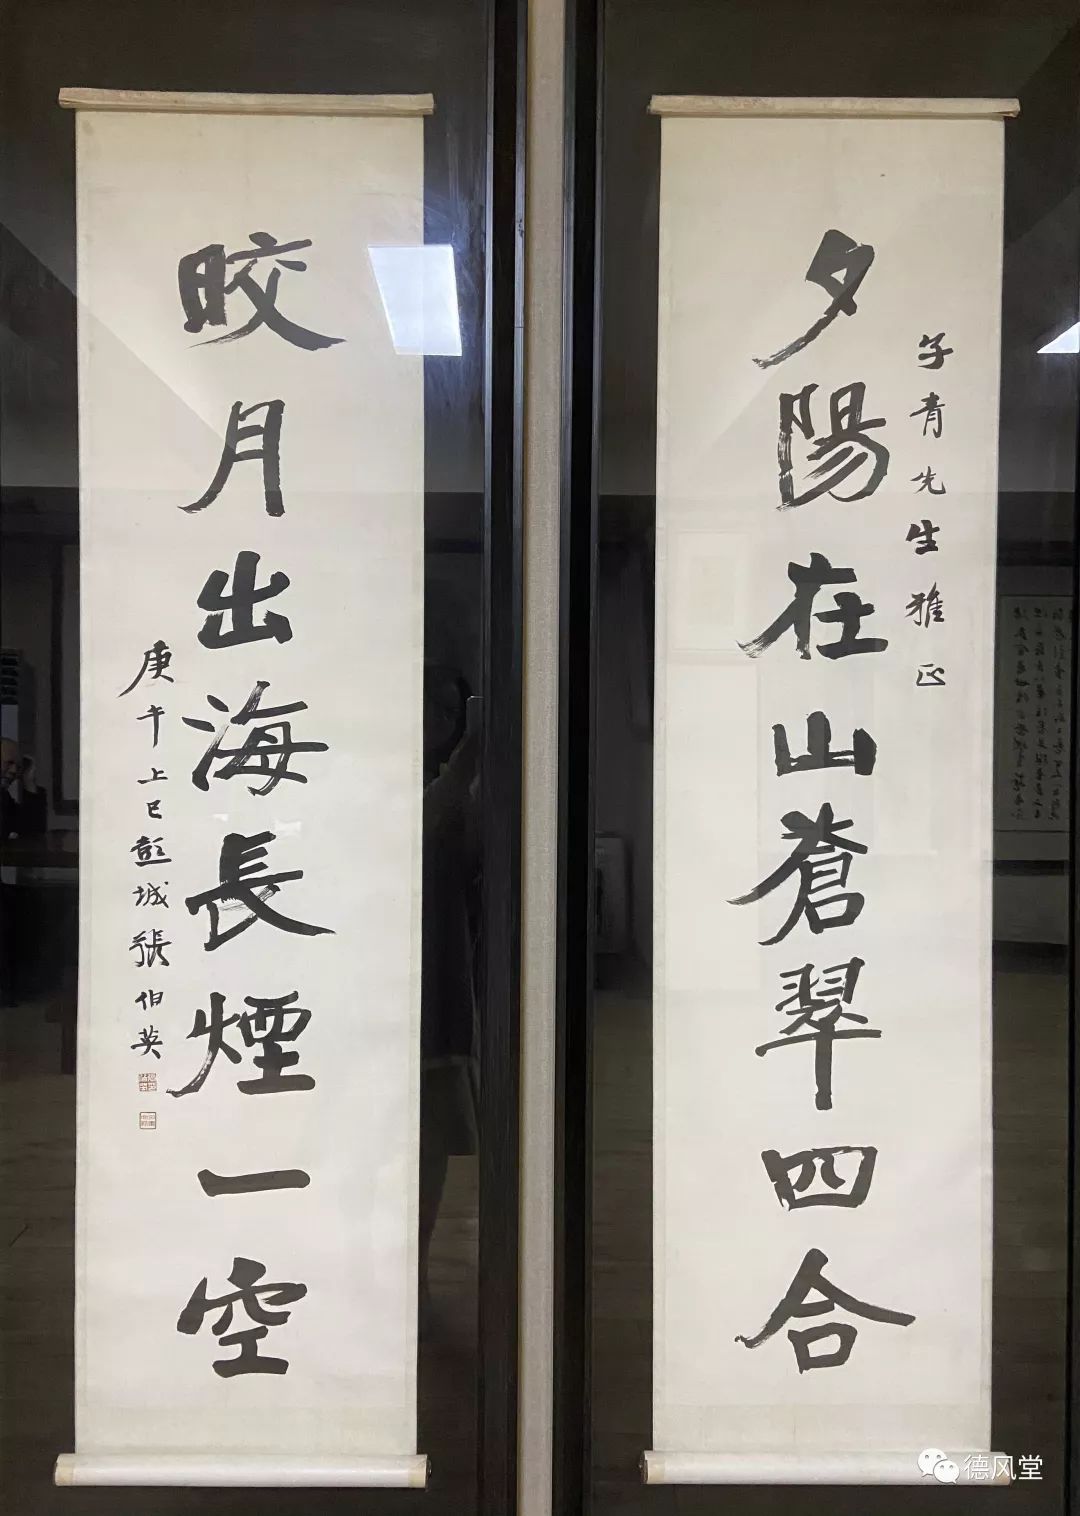 夕陽在山蒼翠四合
子青先生雅正
晈月出海長煙一空
庚午上巳彭城張伯英
德风堂